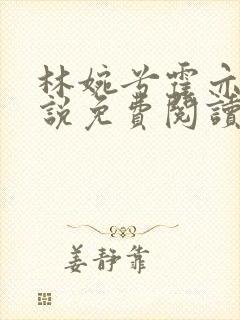 林婉兮霍亦
說免費閱讀
姜靜靠